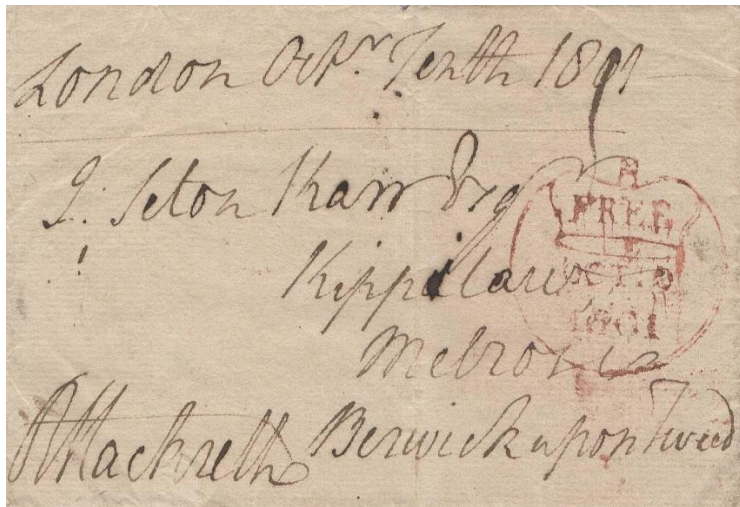 London Octr Tenth 1801
J: Seton Karr Esqr
Kippilaw
Melrose
Berwick upon Tweed
RMackreth
R
FREE
OCT
1801